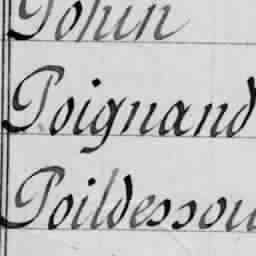 Poignand
Poildessou